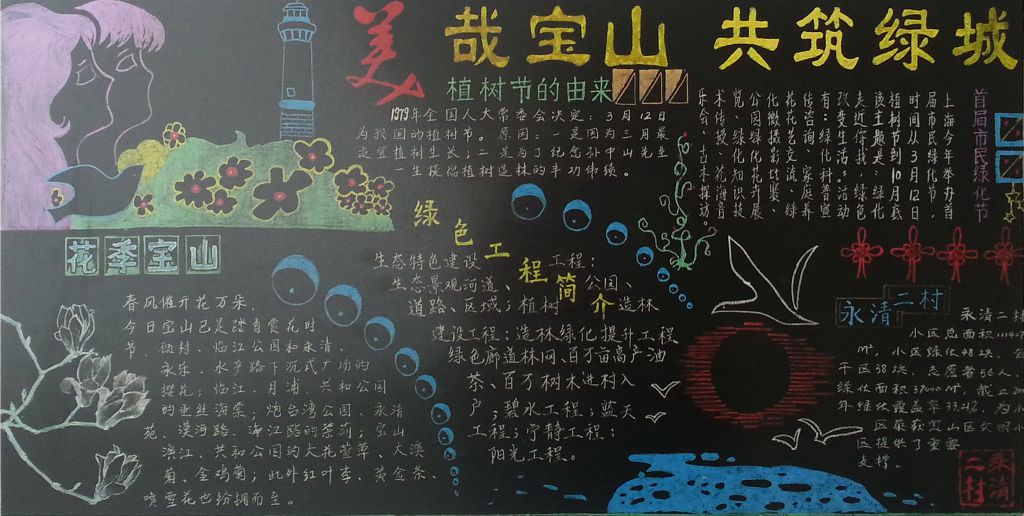 美哉宝山 共筑绿城
植树节的由来
1979年全国人大常委会决定：3月12日
为我国的植树节。原因：一是因为三月最
适宜植树生长；二是为了纪念孙中山先生
一生提倡植树造林的丰功伟绩。
首届市民绿化节
上海今年举办首
届市民绿化节，
时间从3月12日
植树节到10月底
该主题是：绿化
走近你我，绿色
改变生活。活动
有：绿化科普宣
传咨询、家庭养
花花艺交流、绿
化微摄影比赛、
公园绿化花卉展
览、绿化知识技
术传授、花海音
乐会、古木探访。
花季宝山
春风催开花万朵，
今日宝山已是踏青赏花时
节。顾村、临江公园和永清、
永乐、水产路下沉式广场的
樱花；临江、月浦、共和公园
的垂丝海棠；炮台湾公园、永清
苑、漠河路、海江路的茶莉；宝山
滨江、共和公园的大花萱草、大滨
菊、金鸡菊；此外红叶李、黄金条、
喷雪花也纷拥而至。
绿色工程简介
生态特色建设工程：
生态景观河道、公园、
道路、区域；植树造林
建设工程：造林绿化提升工程
绿色廊道林网、百万亩高产油
茶、百万树木进村入
户；碧水工程；蓝天
工程；宁静工程；
阳光工程。
永清二村
永清二村
小区总面积
m²，小区绿化48块、
干区38块，志愿者56人，
绿化面积37000m²，截止
外绿化覆盖率33.21%，为小
区荣获宝山区文明小
区提供了重要
支撑。
永清
二村